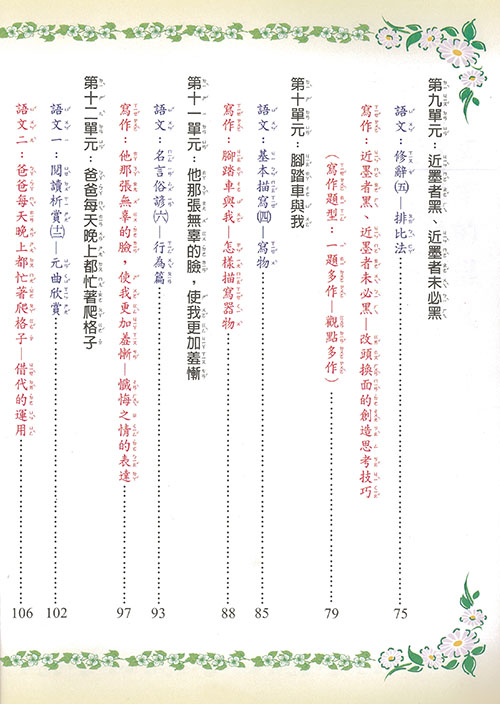 第九單元：近墨者黑、近墨者未必黑
語文：修辭（五）—排比法……75
寫作：近墨者黑、近墨者未必黑—改頭換面的創造思考技巧
（寫作題型：一題多作—觀點多作）……79
第十單元：腳踏車與我
語文：基本描寫（四）—寫物……85
寫作：腳踏車與我—怎樣描寫器物……88
第十一單元：他那張無辜的臉，使我更加羞慚
語文：名言俗諺（六）—行為篇……93
寫作：他那張無辜的臉，使我更加羞慚—懺悔之情的表達……97
第十二單元：爸爸每天晚上都忙著爬格子
語文一：閱讀析賞（十二）—元曲欣賞……102
語文二：爸爸每天晚上都忙著爬格子—借代的運用……106